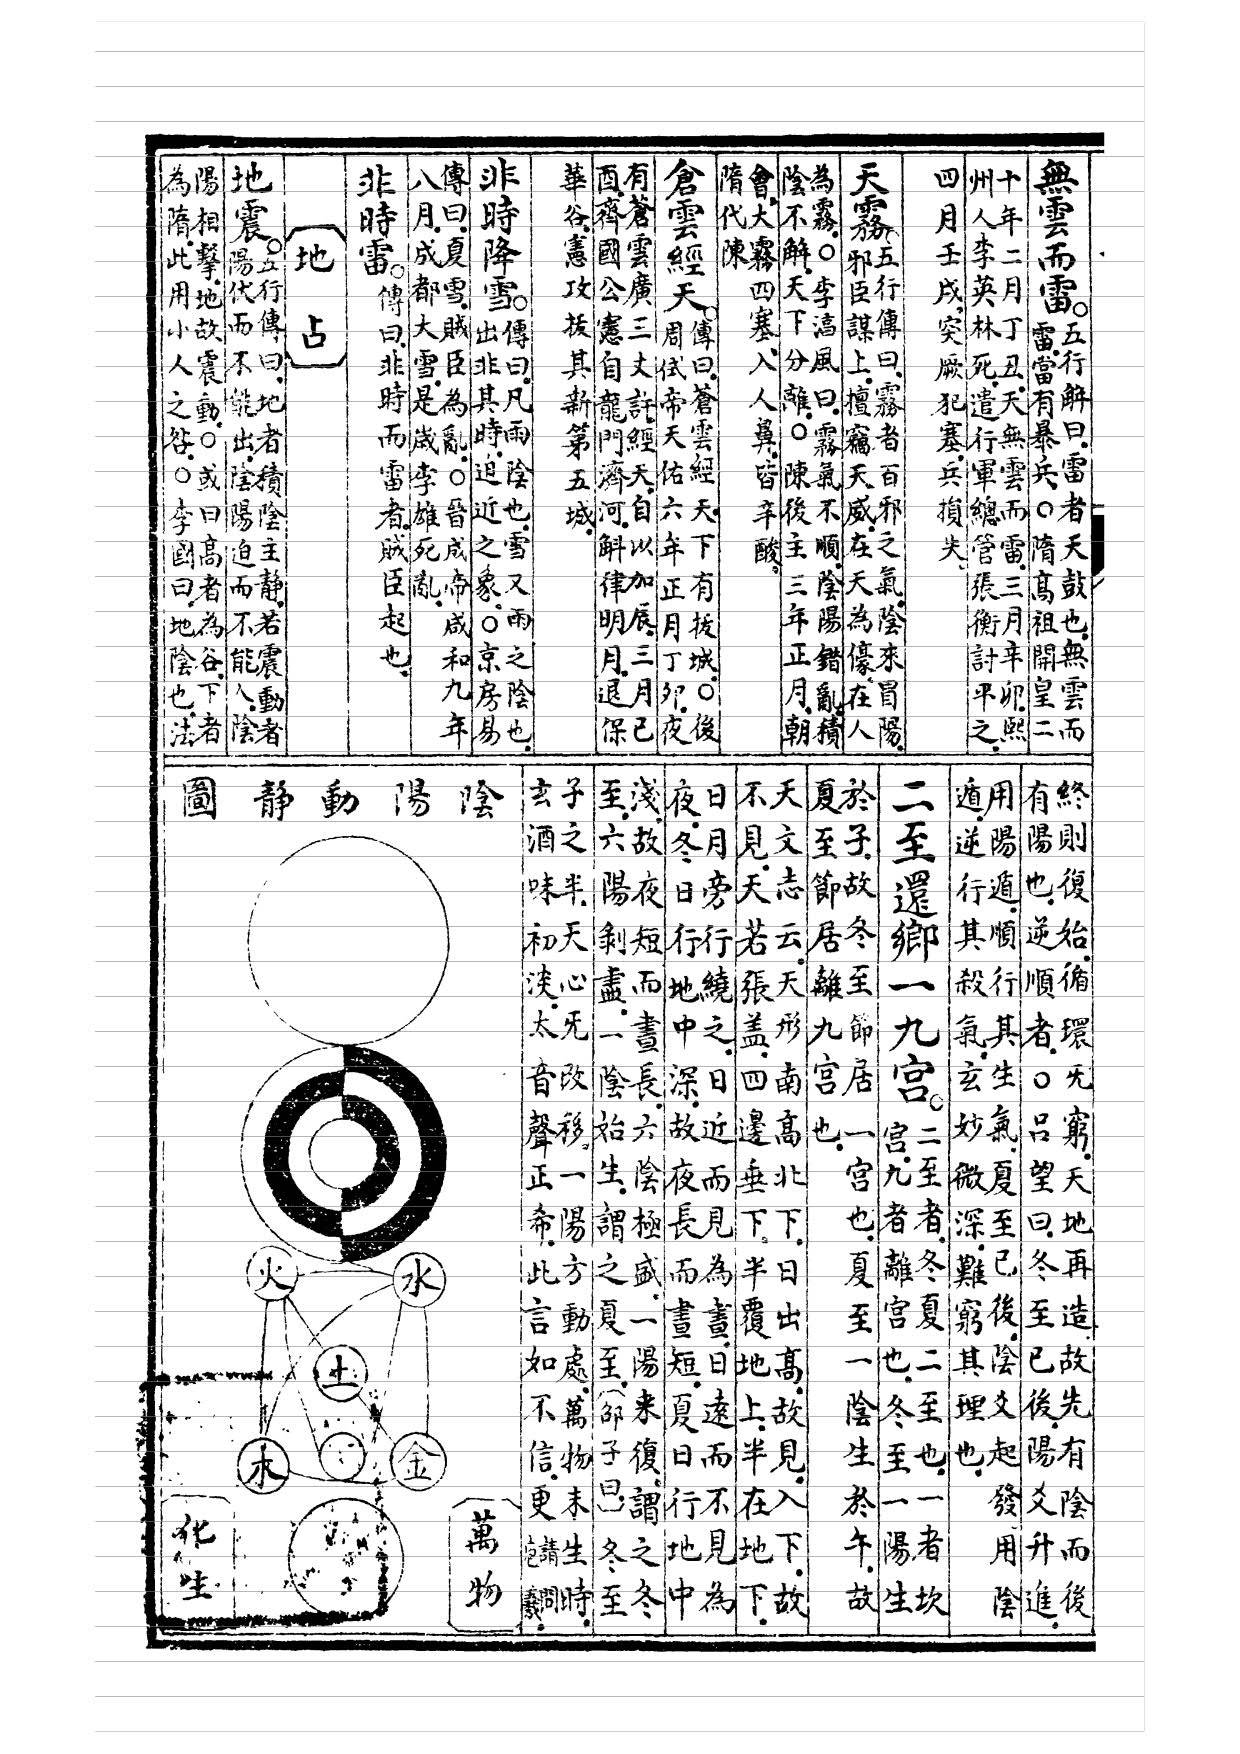 無雲而雷。五行解曰雷者天鼓也無雲而
雷當有暴兵〇隋高祖開皇二
十年二月丁丑天無雲而雷三月辛卯熙
州人李英林死遣行軍總管張衡討平之
四月壬戌突厥犯塞兵損失
天霧五行傳曰霧者百邪之氣陰來冒陽
邪臣謀上擅竊天威在天為濛在人
為霧〇李淳風曰霧氣不順陰陽錯亂積
陰不解天下分離〇陳後主三年正月朝
會大霧四塞入人鼻皆辛酸
隋代陳
倉雲經天。傳曰蒼雲經天下有拔城〇後
周武帝天佑六年正月丁卯夜
有蒼雲廣三丈許經天自以加辰三月己
酉齊國公憲自龍門濟河斛律明月退保
華谷憲攻拔其新第五城
非時降雪。傳曰凡雨陰也雪又雨之陰也
出非其時迫近之象〇京房易
傳曰夏雪賊臣為亂〇晉成帝咸和九年
八月成都大雪是歲李雄死亂
非時雷。傳曰非時而雷者賊臣起也
地占
地震。五行傳曰地者積陰主靜若震動者
陽伏而不能出陰陽迫而不能入陰
陽相擊地故震動〇或曰高者為谷下者
為隋此用小人之咎〇李國曰地陰也法
終則復始循環无窮天地再造故先有陰而後
有陽也逆順者〇呂望曰冬至已後陽爻升進
用陽遁順行其生氣夏至已後陰爻起發用陰
遁逆行其殺氣玄妙微深難窮其理也
二至還鄉一九宮。二至者冬夏二至也一者坎
宮九者離宮也冬至一陽生
於子故冬至節居一宮也夏至一陰生於午故
夏至節居離九宮也
天文志云天形南高北下日出高故見入下故
不見天若張盖四邊垂下半覆地上半在地下
日月旁行繞之日近而見為晝日遠而不見為
夜冬日行地中深故夜長而晝短夏日行地中
淺故夜短而晝長六陰極盛一陽来復謂之冬
至六陽剝盡一陰始生謂之夏至邵子曰冬至
子之半天心无改移一陽方動處萬物未生時
玄酒味初淡太音聲正希此言如不信更請問
陰陽動靜圖
火
水
土
木
金
萬物
化生